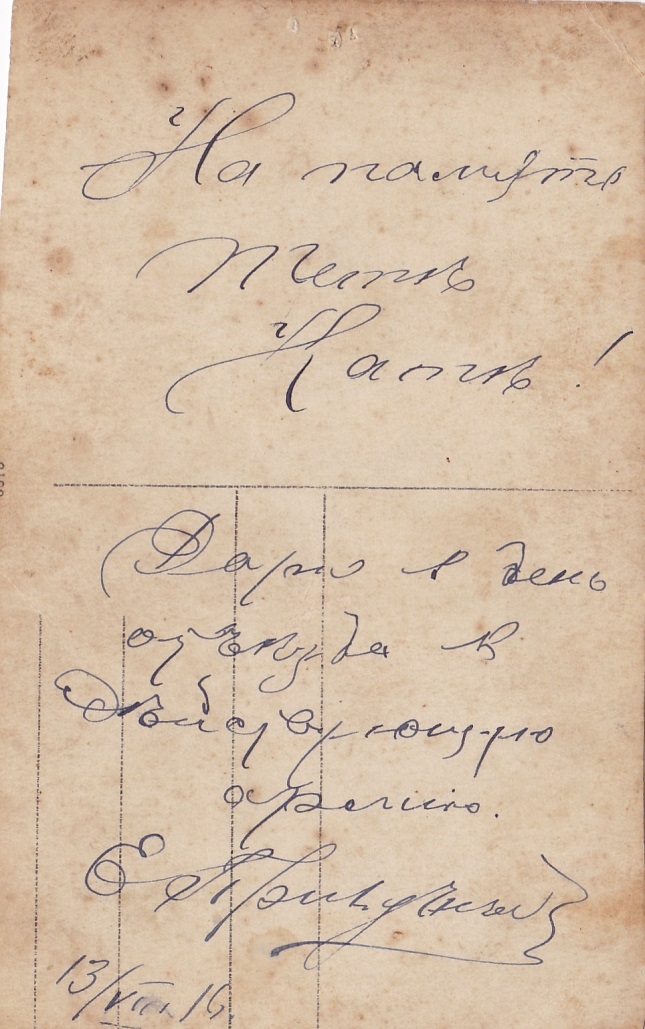 На память
тетѣ
Катѣ!
Дарю в день
отъѣзда в
Дѣйствующую
армию.
Е.
13/VIII 16